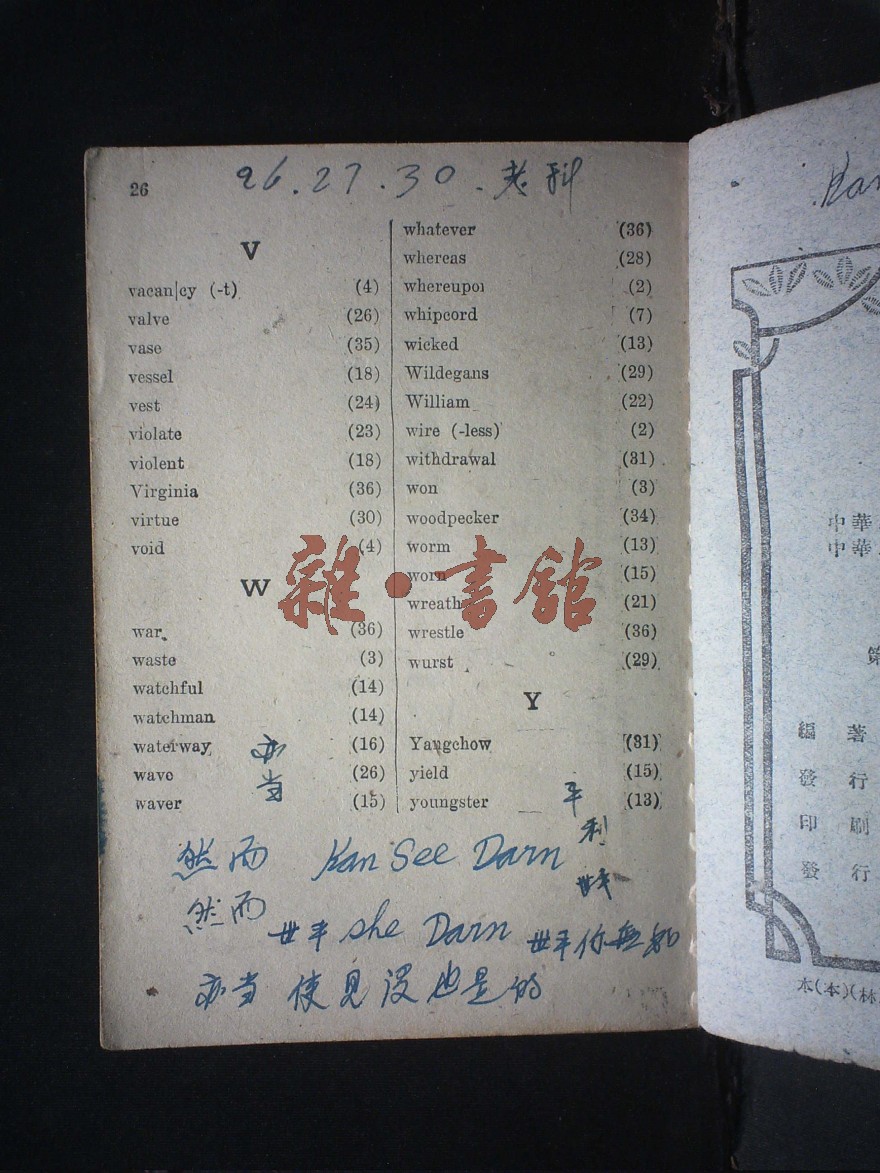 26
26.27.30.考科
V
vacan|cy (-t) (4)
valve (26)
vase (35)
vessel (18)
vest (24)
violate (23)
violent (18)
Virginia (36)
virtue (30)
void (4)
W
war (36)
waste (3)
watchful (14)
watchman (14)
waterway (16)
wave (26)
waver (15)
亦当
whatever (36)
whereas (28)
whereupon (2)
whipcord (7)
wicked (13)
Wildegans (29)
William (22)
wire (-less) (2)
withdrawal (31)
won (3)
woodpecker (34)
worm (13)
worn (15)
wreath (21)
wrestle (36)
wurst (29)
Y
Yangchow (31)
yield (15)
youngster (13)
雜·書館
然而 Kan See Darn
然而
世平 she Darn 世平你無知
亦当 使見没也是的
中華
中華
第
編著
發行
印刷
發行
本(本)(林)